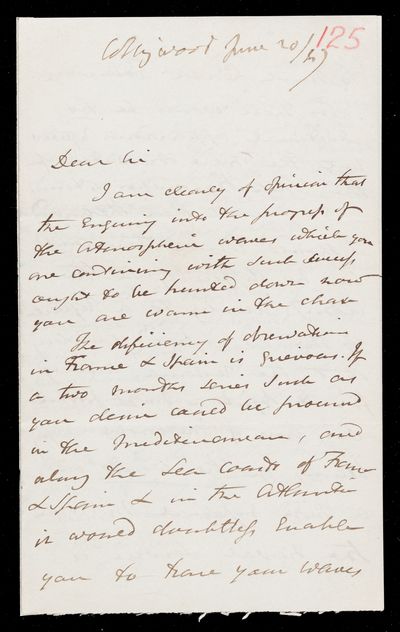 125
Collingwood June 20/47
Dear Sir
I am clearly of opinion that
the Enquiry into the progress of
the atmospheric waves which you
are continuing with such success
ought to be hunted down now
you are warm in the chase
The deficiency of observations
in France & Spain is Grievous. If
a two months series such as
you desire could be procured
in the Mediterranean, and
along the Sea coasts of France
& Spain & in the Atlantic
it would doubtless Enable
you to trace your waves